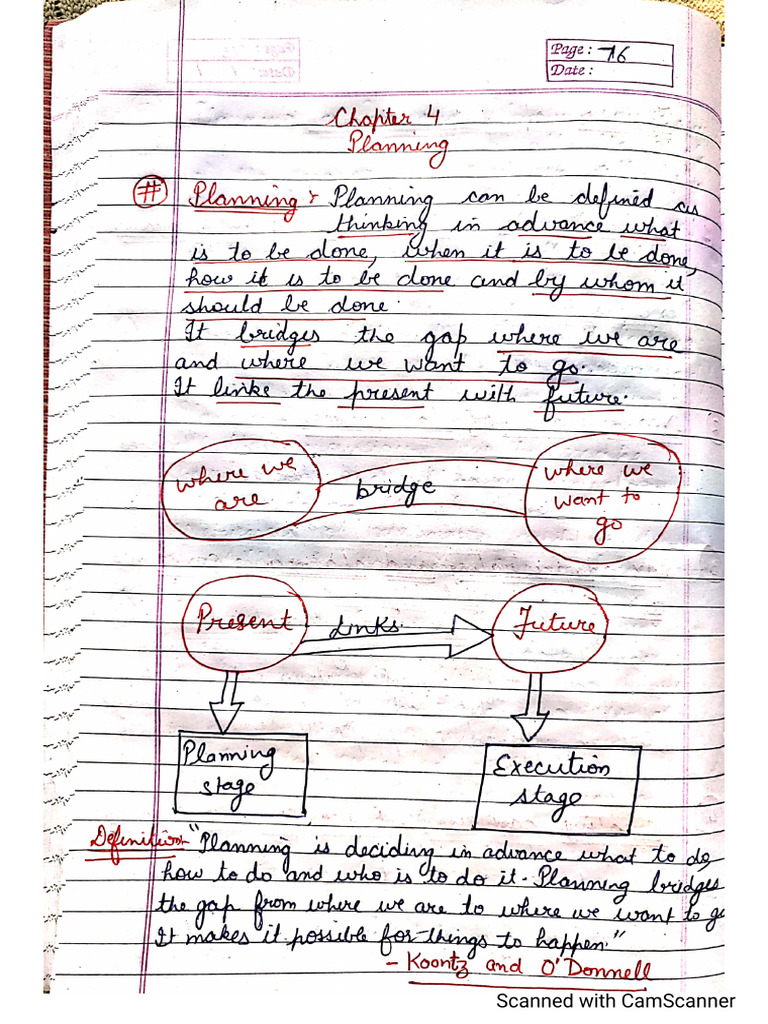 Page: 76
Date:
Chapter 4
Planning
# Planning :- Planning can be defined as
thinking in advance what
is to be done, when it is to be done,
how it is to be done and by whom it
should be done.
It bridges the gap where we are
and where we want to go.
It links the present with future.
where we
are
bridge
where we
want to
go
Present
Links
Future
Planning
stage
Execution
stage
Definition- "Planning is deciding in advance what to do,
how to do and who is to do it. Planning bridges
the gap from where we are to where we want to go
It makes it possible for things to happen."
- Koontz and O'Donnell
Scanned with CamScanner